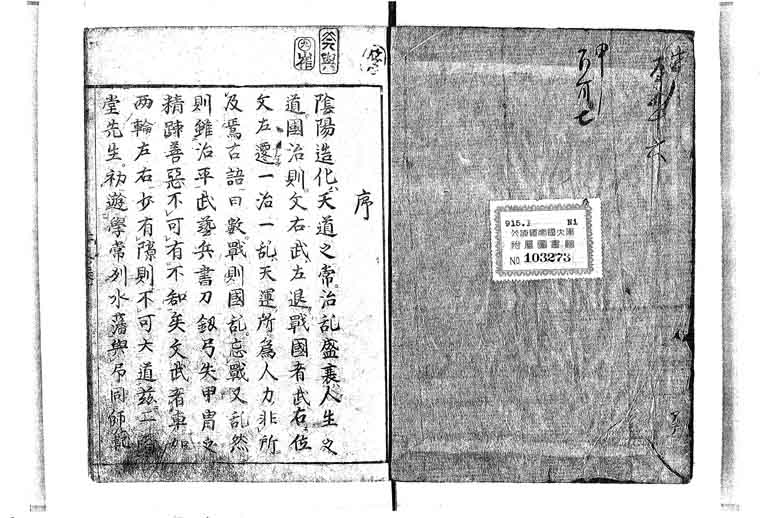 序
陰陽造化天道之常治乱盛衰人生之
道國治則文右武左退戰國者武右位
文左遷一治一乱天運所為人力非所
及焉古語曰數戰則國乱忘戰又乱然
則雖治平武藝兵書刀釼弓矢甲冑之
精踈善惡不可有不知矣文武者車如
两輪左右少有隙則不可大道茲二
堂先生初遊學常州水藩與予同師範
915.1 N1
附屬圖書館
No 103273